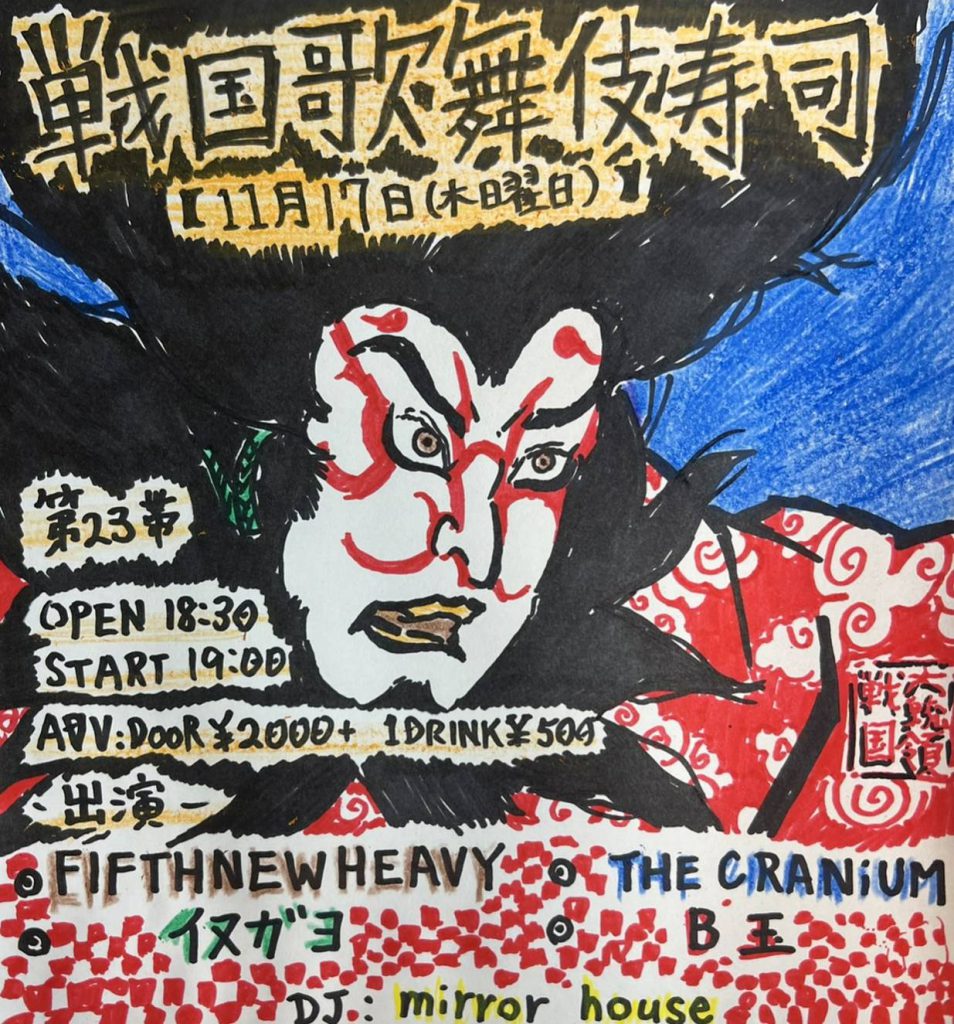 戦国歌舞伎寿司
【11月17日(木曜日)】
第23幕
OPEN 18:30
START 19:00
ADV:DOOR ¥2000+ 1DRINK ¥500
-出演-
◎ FIFTHNEWHEAVY ◎ THE CRANiUM
◎ イヌガヨ ◎ B玉
大統領
戦国
DJ.: mirror house